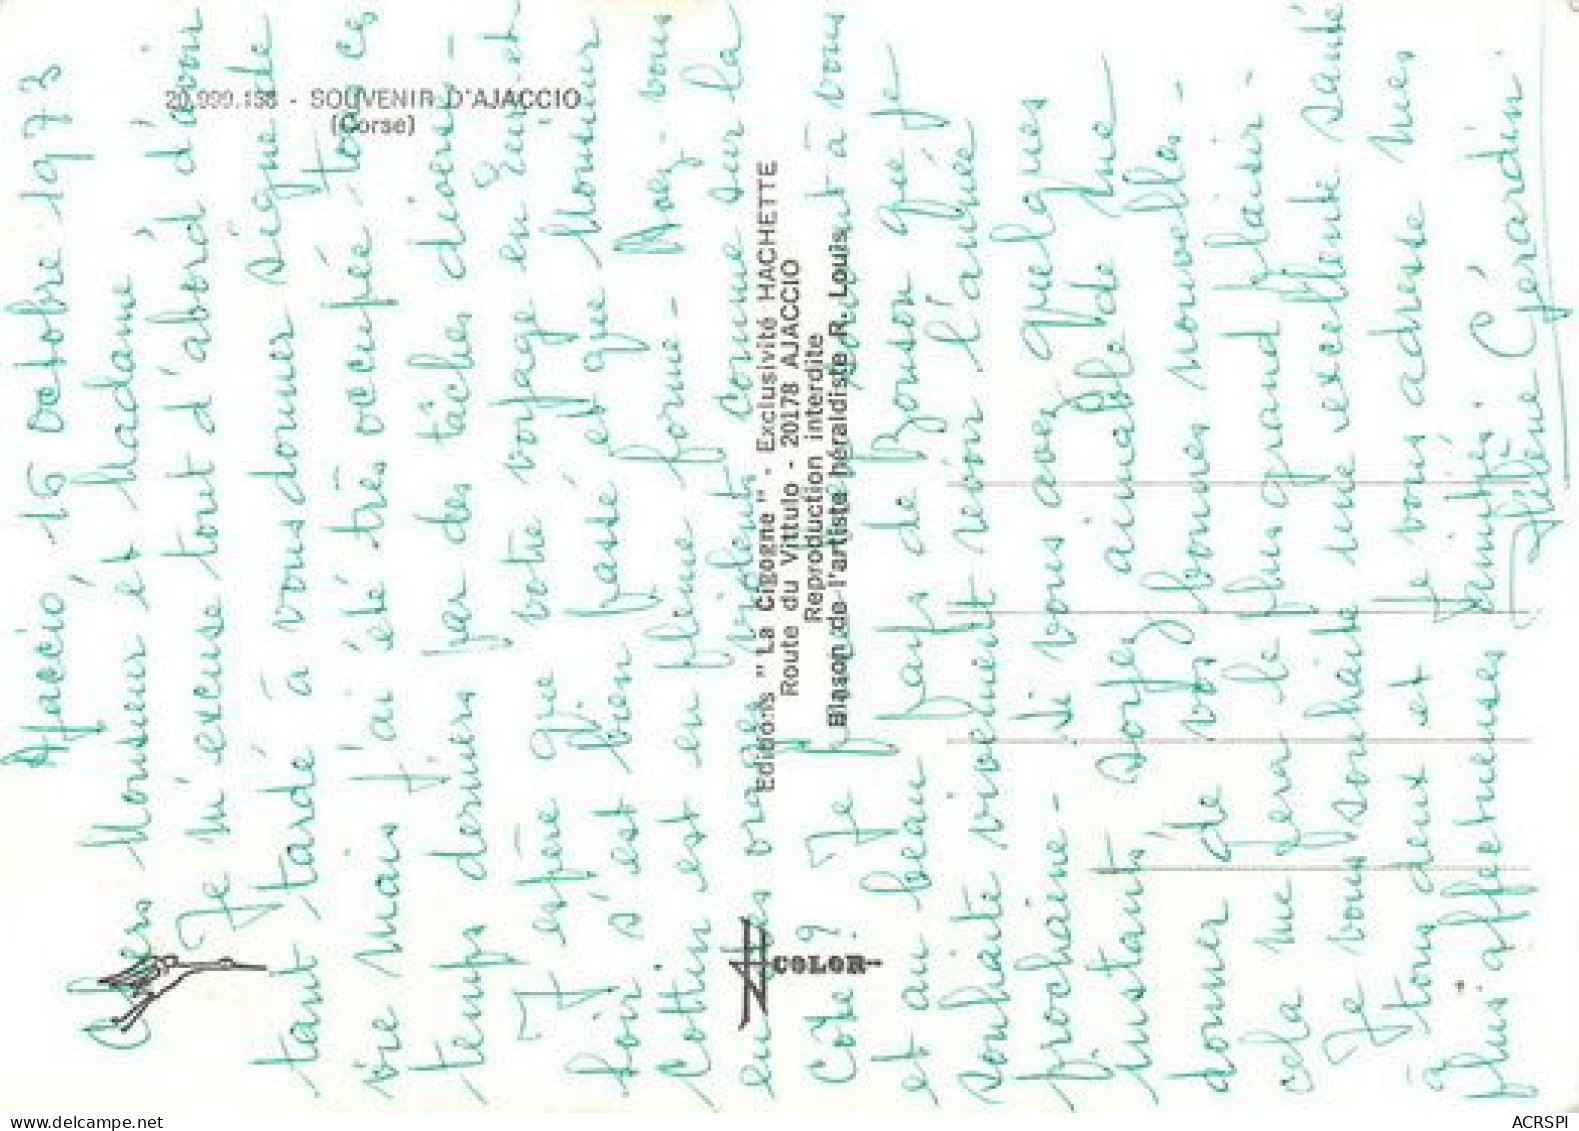 20.999.138 - SOUVENIR D'AJACCIO
(Corse)
Editions "La Cigogne" - Exclusivité HACHETTE
Route du Vittulo - 20178 AJACCIO
Reproduction interdite
Blason de l'artiste héraldiste R. Louis
COLOR
Ajaccio, 15 octobre 1973
Chers Monsieur et Madame
Je m'excuse tout d'abord d'avoir
tant tardé à vous donner signe de
vie mais j'ai été très occupée tous ces
temps derniers par des tâches diverses -
J'espère que votre voyage en
soir s'est bien passé et que Monsieur
Cottin est en pleine forme - Avez-vous
eu des orages violents comme sur la
Côte ? Je à vous
et au beau pays de Bonson que je
souhaite vivement revoir l'année
prochaine - Si vous avez quelques
instants, soyez aimable de me
donner de vos bonnes nouvelles -
cela me fera le plus grand plaisir -
Je vous souhaite une excellente santé
à tous deux et je vous adresse mes
plus affectueuses amitiés.
Hélène Gérardin.
ACRSPI